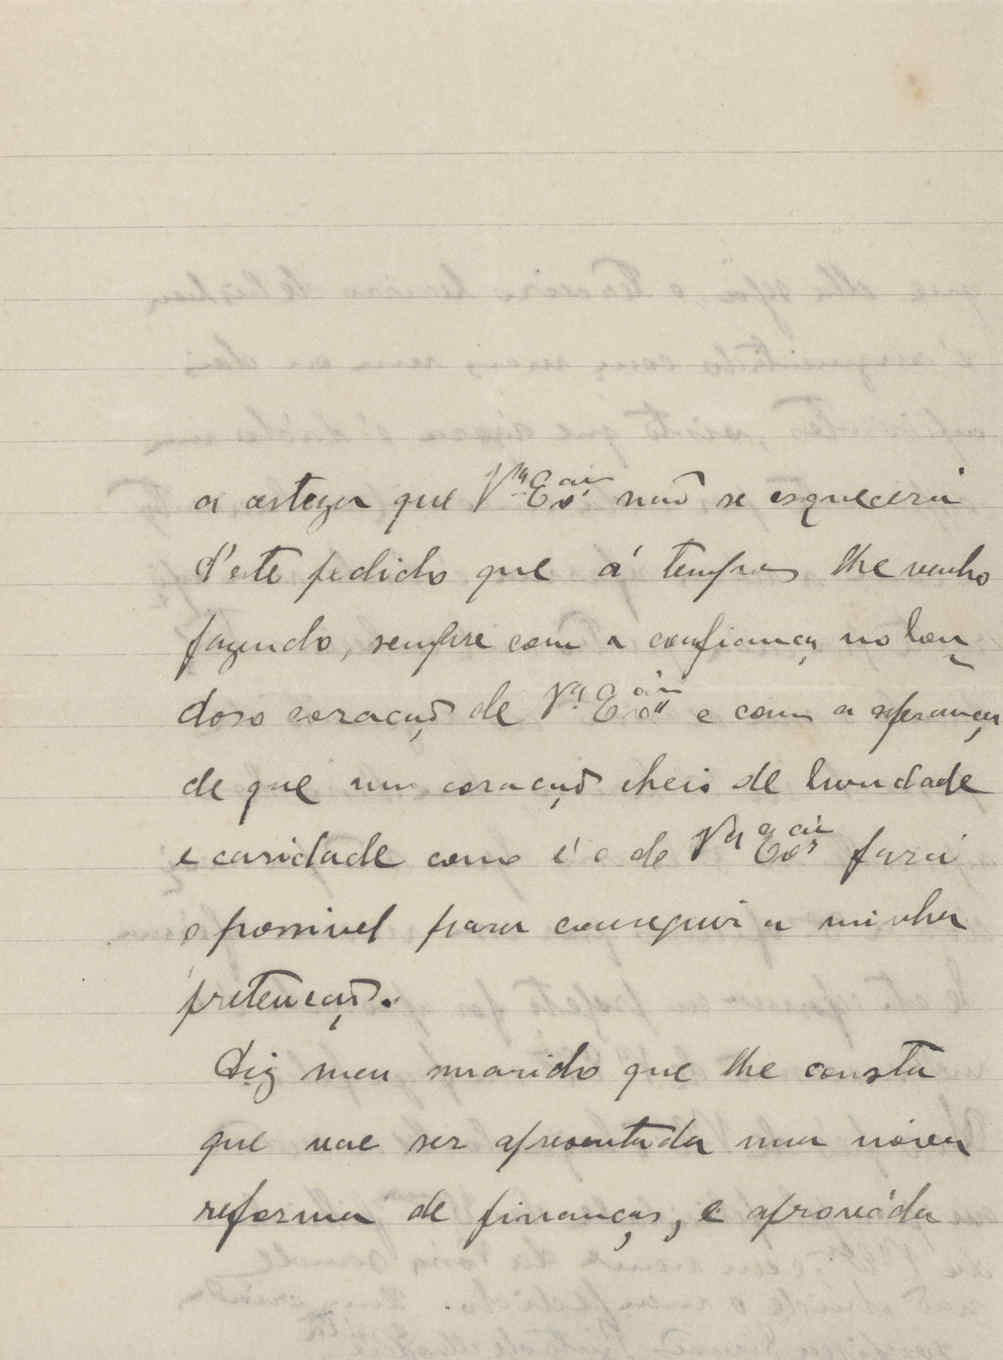 a certeza que V.ª Ex.cia não se esquecerá
d'este pedido que á tempos lhe venho
fazendo, sempre com a confiança no bon
doso coração de V.ª Ex.cia e com a esperança
de que um coração cheio de bondade
e caridade como é o de Vª Ex.cia fará
o possivel para conseguir a minha
pretenção.
Diz meu marido que lhe consta
que vae ser apresentada uma nóva
reforma de finanças, e aprováda